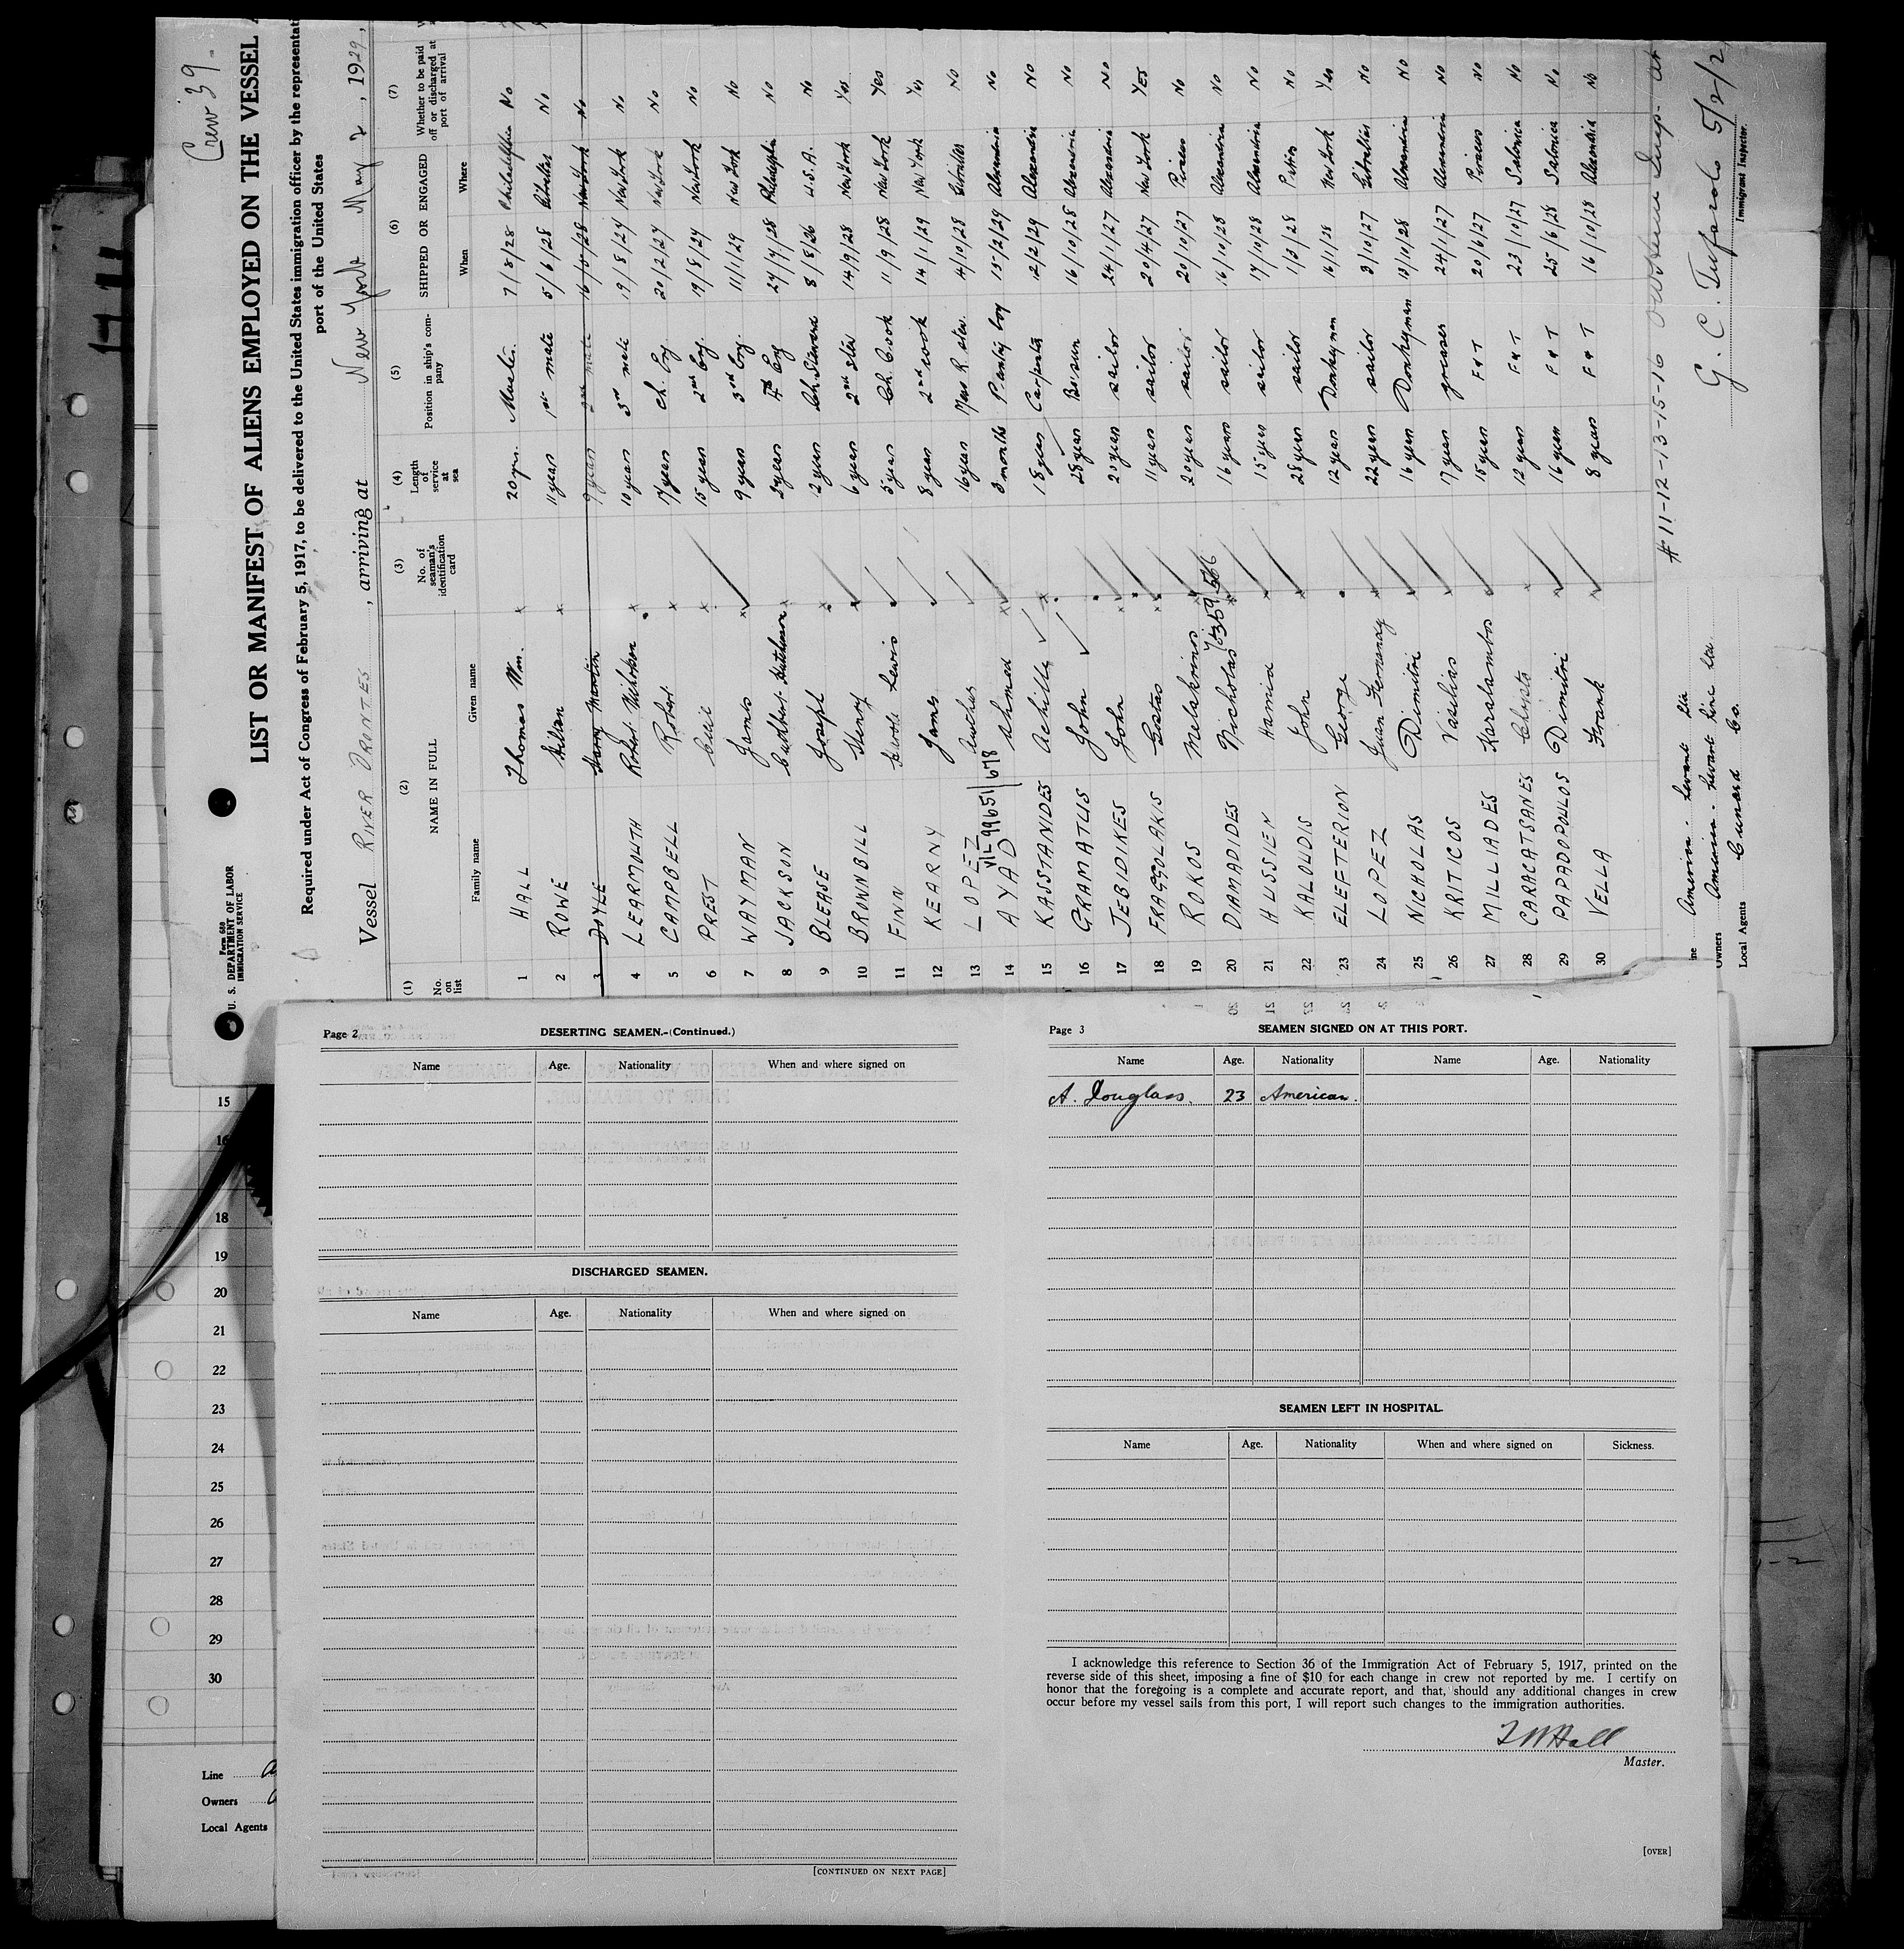 Crew 39
Form 680
U. S. DEPARTMENT OF LABOR
IMMIGRATION SERVICE
LIST OR MANIFEST OF ALIENS EMPLOYED ON THE VESSEL
Required under Act of Congress of February 5, 1917, to be delivered to the United States immigration officer by the
port of the United States
Vessel RIVER ORONTES, arriving at New York May 2, 1929,
(1) (2) (3) (4) (5) (6) (7)
No. on list NAME IN FULL No. of seaman's identification card Length of service at sea Position in ship's company SHIPPED OR ENGAGED Whether to be paid off or discharged at port of arrival
Family name Given name When Where
1 HALL Thomas Wm. 20 yrs. Master. 7/8/28 Philadelphia No
2 ROWE 11 years 1st mate 5/6/28 Gibraltar No
3 DOYLE Harry Martin 9 years 2nd mate New York No
4 LEARMOUTH Robert 10 years 3rd mate 19/8/24 New York No
5 CAMPBELL Robert 17 years Ch. Eng. 20/2/27 New York No
6 PREST Cecil 15 years 2nd Eng. 19/8/24 New York No
7 WAYMAN James 9 years 3rd Eng. 11/1/29 New York No
8 JACKSON Cuthbert Hutchinson years 4th Eng 27/7/28 Philadelphia No
9 BLEASE Joseph 12 years Ch. Steward 8/8/26 U.S.A. No
10 BROWNBILL Henry 6 years 2nd Stew 14/9/28 New York Yes
11 FINN Lewis 5 years Ch. Cook 11/9/28 New York Yes
12 KEARNY James 8 years 2nd cook 14/1/29 New York Yes
13 LOPEZ 16 years Mess R. stew. 4/10/28 Gibraltar No
VIL 99651/678
14 AYAD Ahmad 3 months Pantry boy 15/2/29 Alexandria No
15 KASSTANIDES Achille 18 years Carpenter 12/2/29 Alexandria No
16 GRAMATUS John 28 years Bo'sun 16/10/28 Alexandria No
17 JEBIDIKES John 20 years sailor 24/1/27 Alexandria No
18 FRAGGOLAKIS Costas 11 years sailor 20/4/27 New York Yes
19 ROKOS Melakrinos 20 years sailor 20/10/27 Piraeus No
20 DIAMADIDES Nicholas 16 years sailor 16/10/28 Alexandria No
21 HUSSIEN Hamid 15 years sailor 17/10/28 Alexandria No
22 KALOUDIS John 28 years sailor 1/3/28 No
23 ELEFTERION George 12 years Donkeyman 16/1/28 New York Yes
24 LOPEZ Juan Fernandez 22 years sailor 3/10/27 Gibraltar No
25 NICHOLAS Dimitri 16 years Donkeyman 13/10/28 Alexandria No
26 KRITICOS Vasilias 17 years greaser 24/1/27 Alexandria No
27 MILLIADES Karalambos 15 years F & T 20/6/27 Piraeus No
28 CARACATSANES Christo 12 years F & T 23/10/27 Salonica No
29 PAPADOPOULOS Dimitri 16 years F & T 25/6/28 Salonica No
30 VELLA Frank 8 years F & T 16/10/28 Alexandria No
# 11-12-13-15-16
Owners American Levant Line Ltd.
Local Agents Cunard Co.
G. C. Tufarolo 5/2/2
Immigrant Inspector.
Page 2 DESERTING SEAMEN.-(Continued.)
Name Age. Nationality When and where signed on
DISCHARGED SEAMEN.
Name Age. Nationality When and where signed on
[CONTINUED ON NEXT PAGE]
Page 3 SEAMEN SIGNED ON AT THIS PORT.
Name Age. Nationality Name Age. Nationality
A. Douglass. 23 American.
SEAMEN LEFT IN HOSPITAL.
Name Age. Nationality When and where signed on Sickness.
I acknowledge this reference to Section 36 of the Immigration Act of February 5, 1917, printed on the
reverse side of this sheet, imposing a fine of $10 for each change in crew not reported by me. I certify on
honor that the foregoing is a complete and accurate report, and that, should any additional changes in crew
occur before my vessel sails from this port, I will report such changes to the immigration authorities.
T W Hall
Master.
[OVER]
15
16
18
19
20
21
22
23
24
25
26
27
28
29
30
Line
Owners
Local Agents